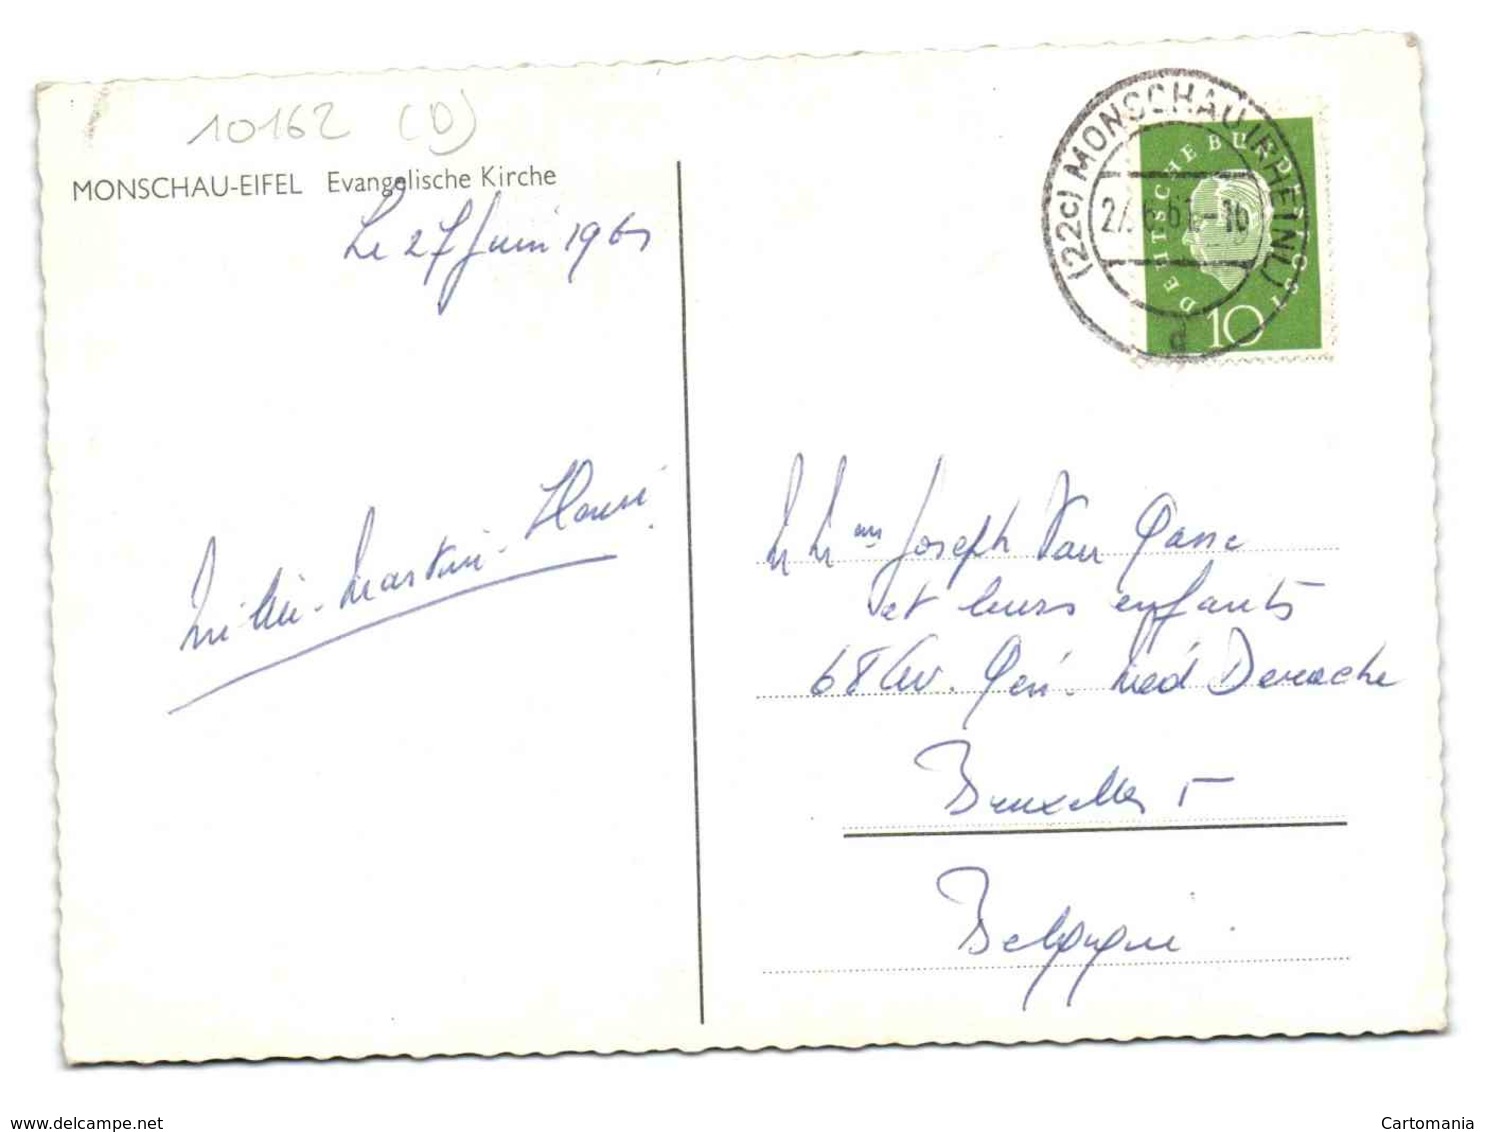 10162 (D)
MONSCHAU-EIFEL Evangelische Kirche
Le 27 Juin 1961
(22c) MONSCHAU (RHEINL)
27.6.61-16
d
DEUTSCHE BUNDESPOST
10
Martin - Henri
Joseph Van
et leurs enfants
68 Av. Gén. Méd Derache
Bruxelles 5
Belgique
www.delcampe.net
Cartomania